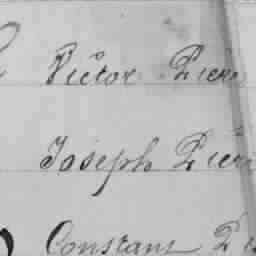 Victor Piér
Joseph Piér
Constant Pi